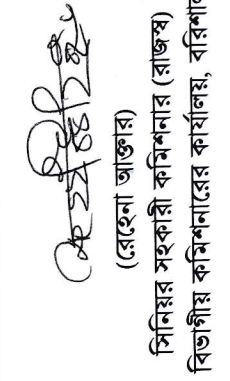 (রেহেনা আক্তার)
সিনিয়র সহকারী কমিশনার (রাজস্ব)
বিভাগীয় কমিশনারের কার্যালয়, বরিশাল